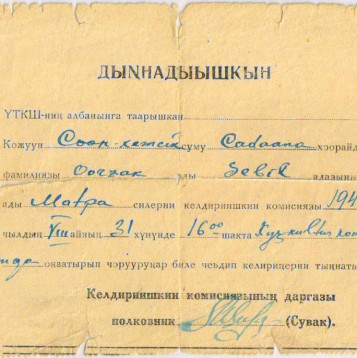 ДЫҢНАДЫЫШКЫН
ҮТКШ-ниң албанынга таарышкан
Кожуун суму Сабаана хоорай
фамилиязы Ооржак адыŠevek адазының
ады Матра силерни келдириишкин комиссиязы 194
чылдың VIII айның 31 хүнүнде 16 00 шакта
онзатырып чоруурунар биле чеьдип келирицерни тыңнаты
Келдириишкин комиссиязының даргазы
полковник (Сувак).